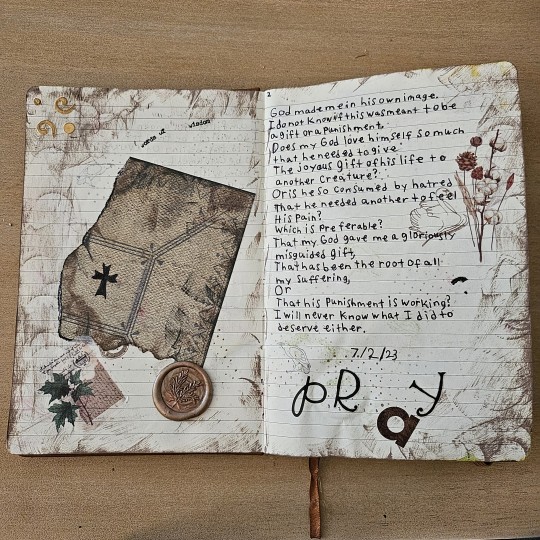 words of wisdom
2
God made me in his own image.
I do not know if this was meant to be
a gift or a punishment.
Does my God love himself so much
that he needed to give
The joyous gift of his life to
another creature?
Or is he so consumed by hatred
That he needed another to feel
His pain?
which is preferable?
That my God gave me a gloriously
misguided gift,
That has been the root of all
my suffering,
Or
That his punishment is working?
I will never know what I did to
deserve either.
7/2/23
PRay